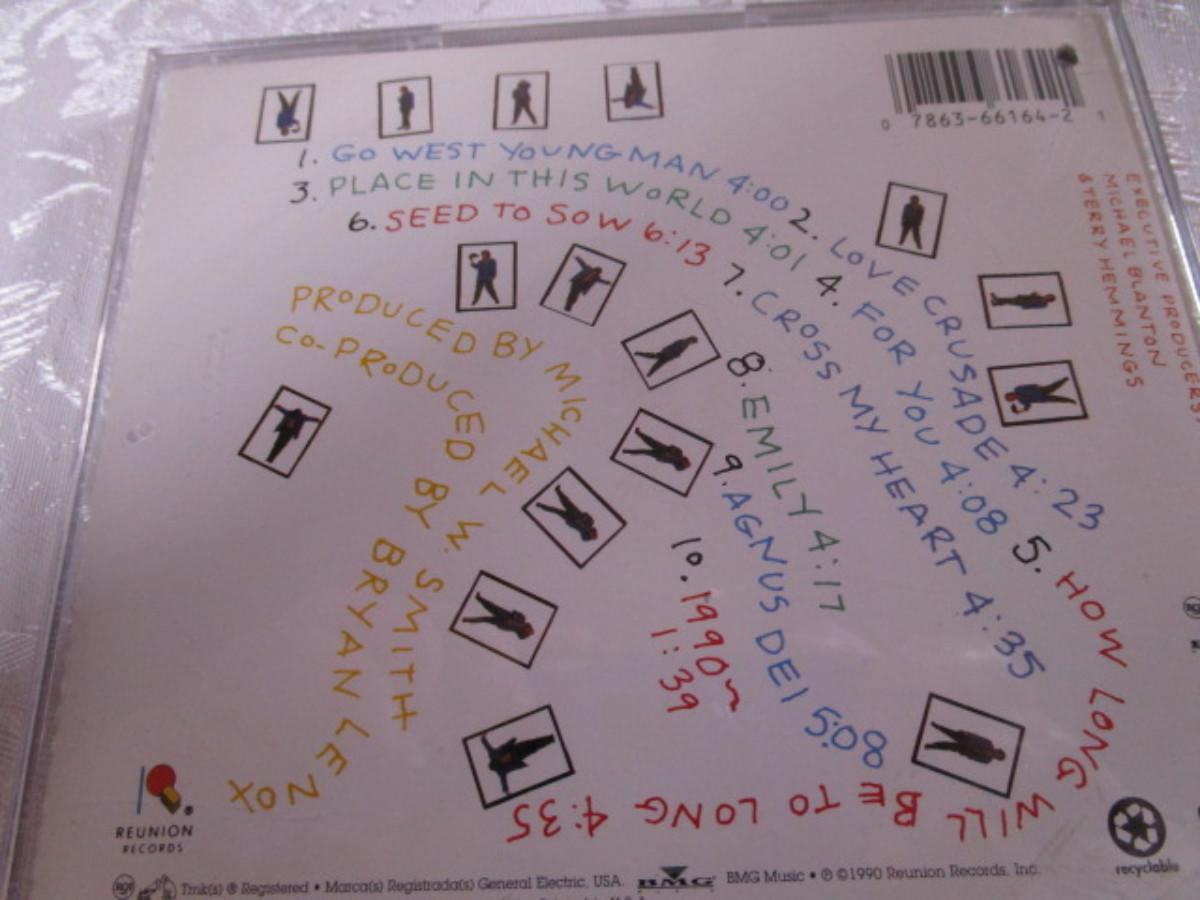 0 7863-66164-2 1
1. GO WEST YOUNG MAN 4:00 2. LOVE CRUSADE 4:23
3. PLACE IN THIS WORLD 4:01 4. FOR YOU 4:08 5. HOW LONG WILL BE TO LONG 4:35
6. SEED TO SOW 6:13 7. CROSS MY HEART 4:35
8. EMILY 4:17
9. AGNUS DEI 5:08
10. 1990~ 1:39
PRODUCED BY MICHAEL W. SMITH
CO-PRODUCED BY BRYAN LENOX
EXECUTIVE PRODUCERS
MICHAEL BLANTON
& TERRY HEMMINGS
REUNION
RECORDS
recyclable
RCA Tmk(s) ® Registered • Marca(s) Registrada(s) General Electric, USA. BMG BMG Music • ℗ ©1990 Reunion Records, Inc.